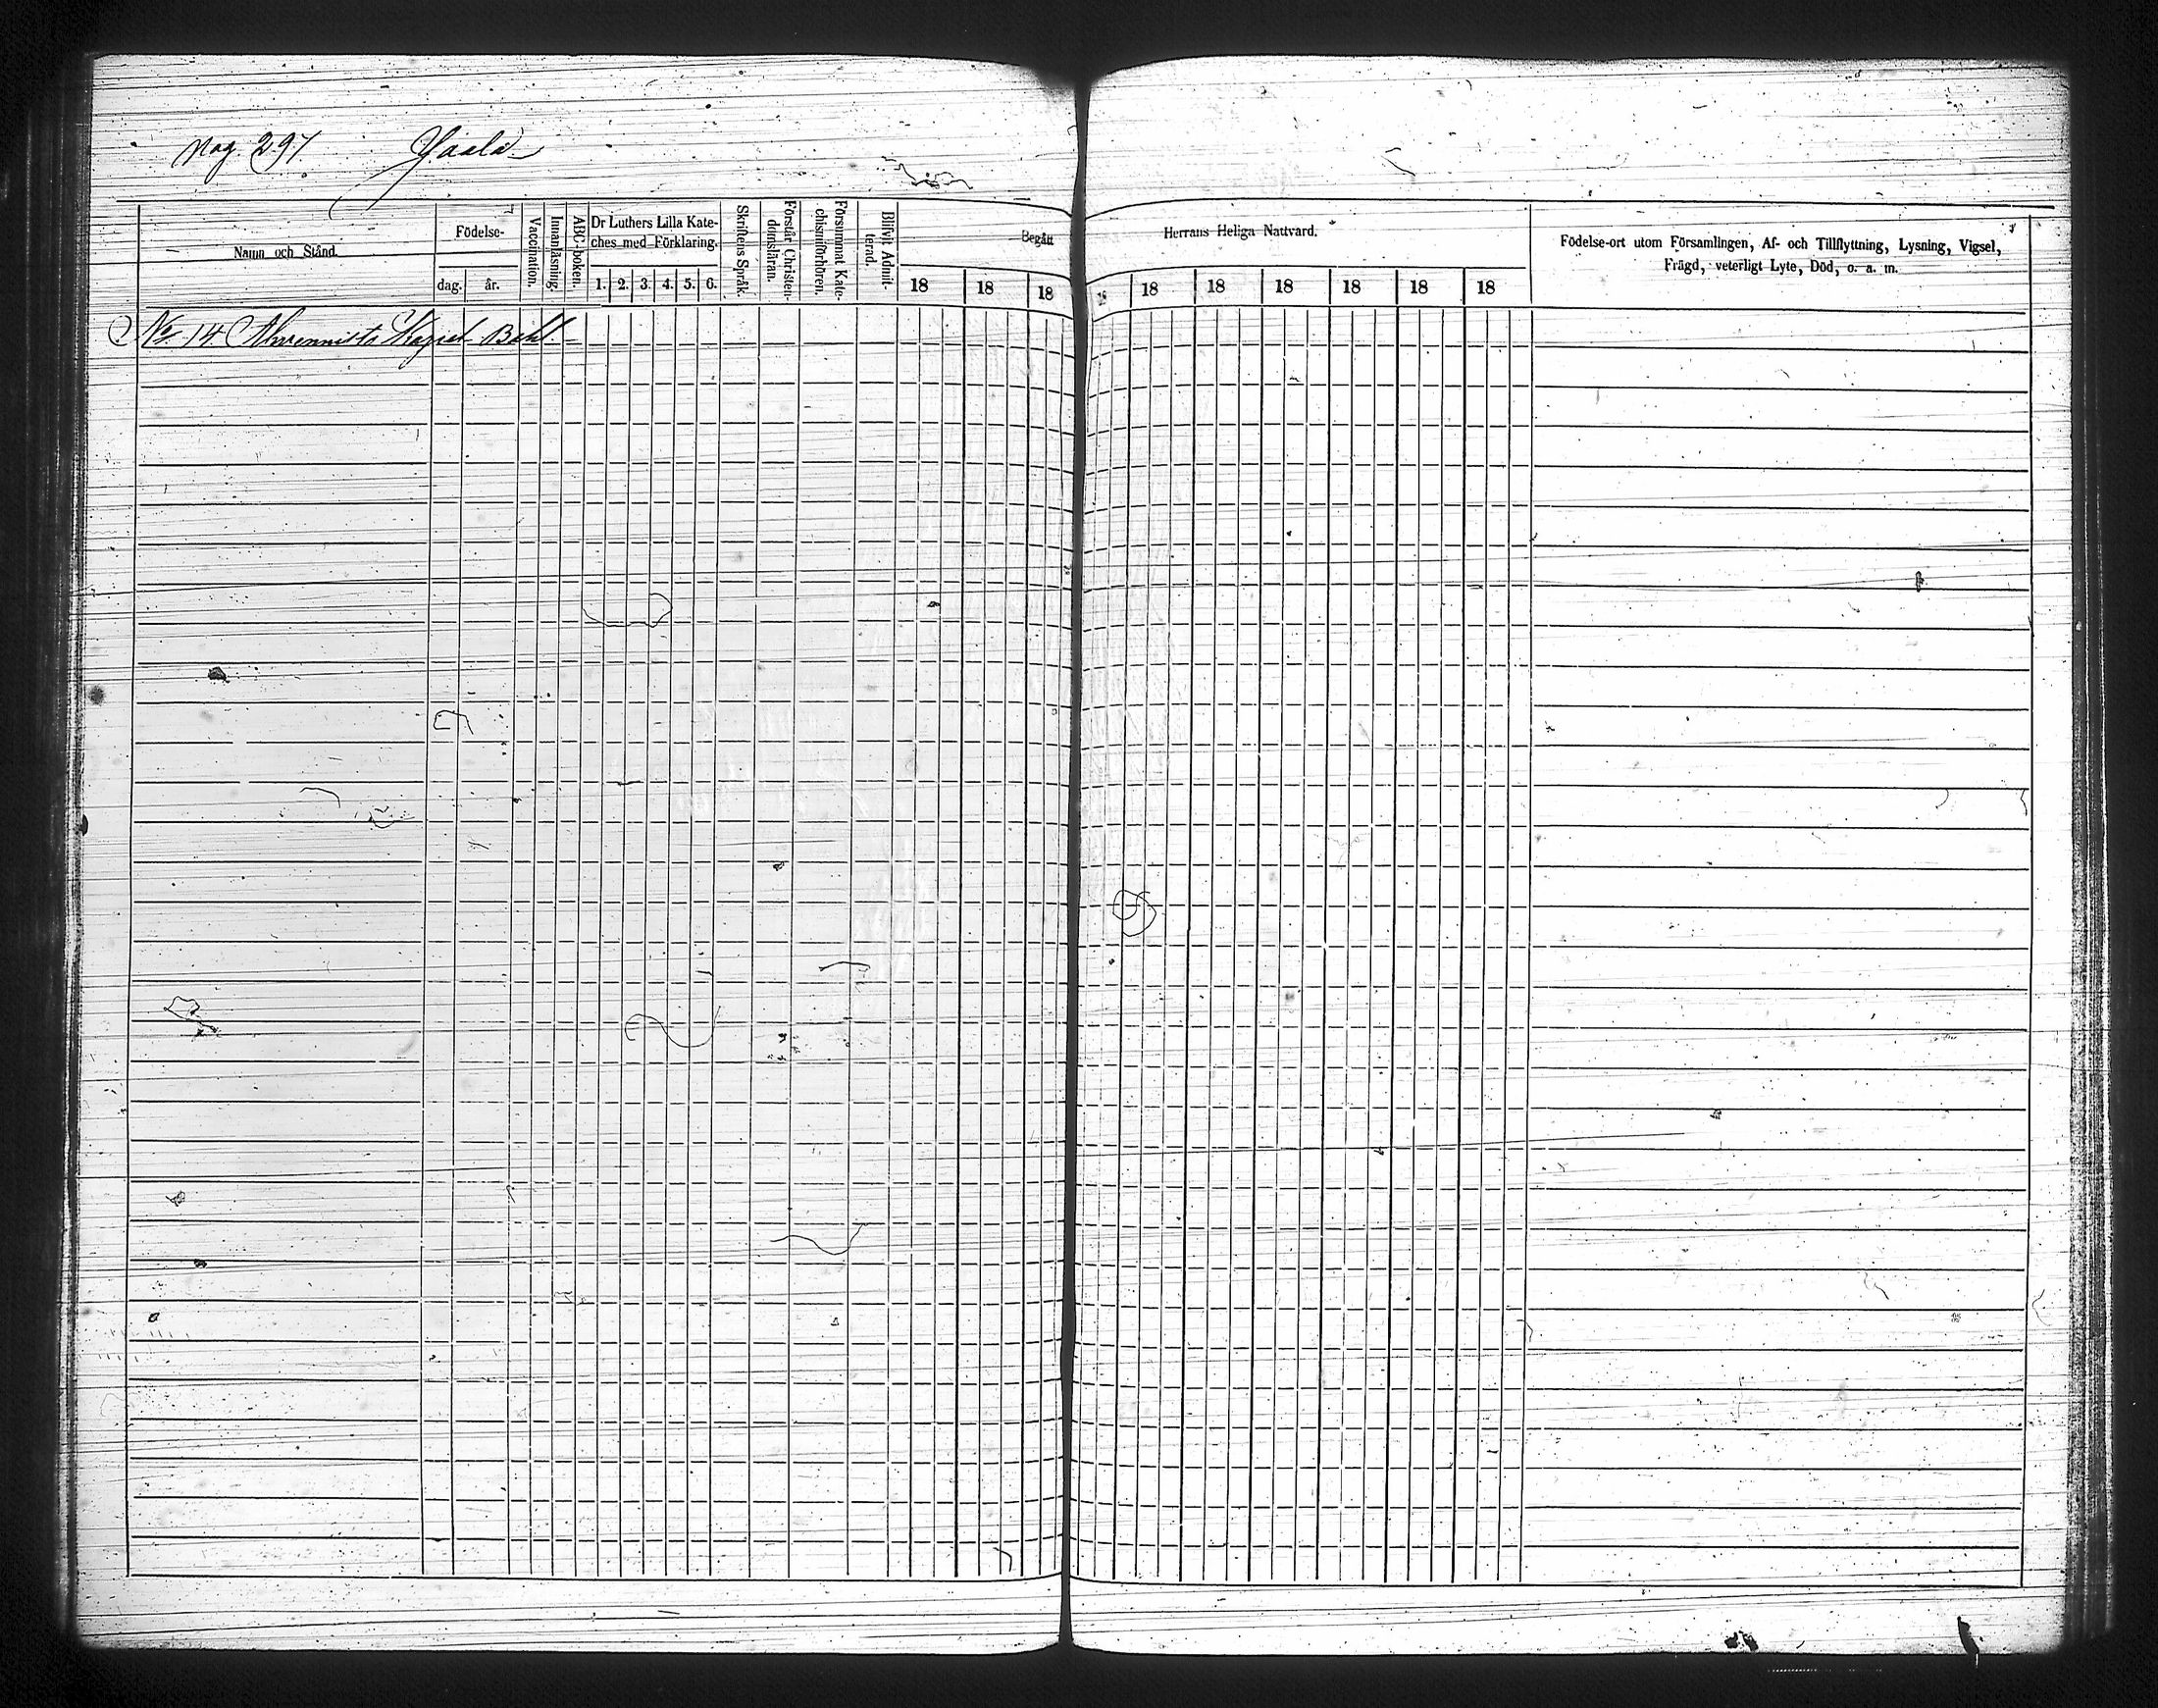 Pag 297. Yaala
Namn och Stånd.
Födelse-
dag. år.
Vaccination.
Innanläsning.
ABC-boken.
Dr Luthers Lilla Kate-
ches med Förklaring.
1. 2. 3. 4. 5. 6.
Skriftens Språk.
Förstår Christen-
domsläran.
Försummat Kate-
chismiförhören.
Blifvit Admit-
terad.
Begått Herrans Heliga Nattvard.
18 18 18 18 18 18 18 18 18 18
Födelse-ort utom Församlingen, Af- och Tillflyttning, Lysning, Vigsel,
Frägd, veterligt Lyte, Död, o. a. m.
No 14